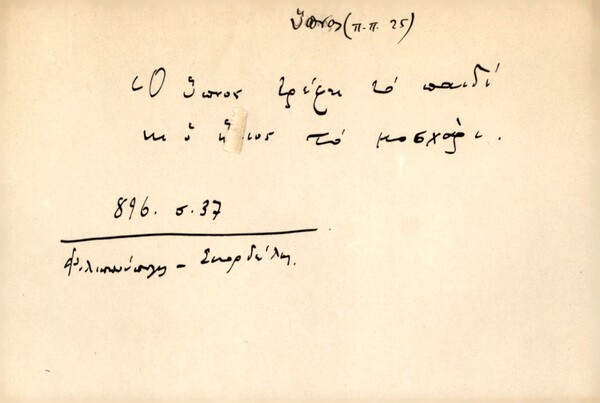 ὕπνος (π.π. 25)
Ὁ ὕπνος τρέφει τό παιδί
κι ὁ ἥλιος τό μοσχάρι.
896. σ. 37
Φιλιππούπολις – Σκορδέλης.